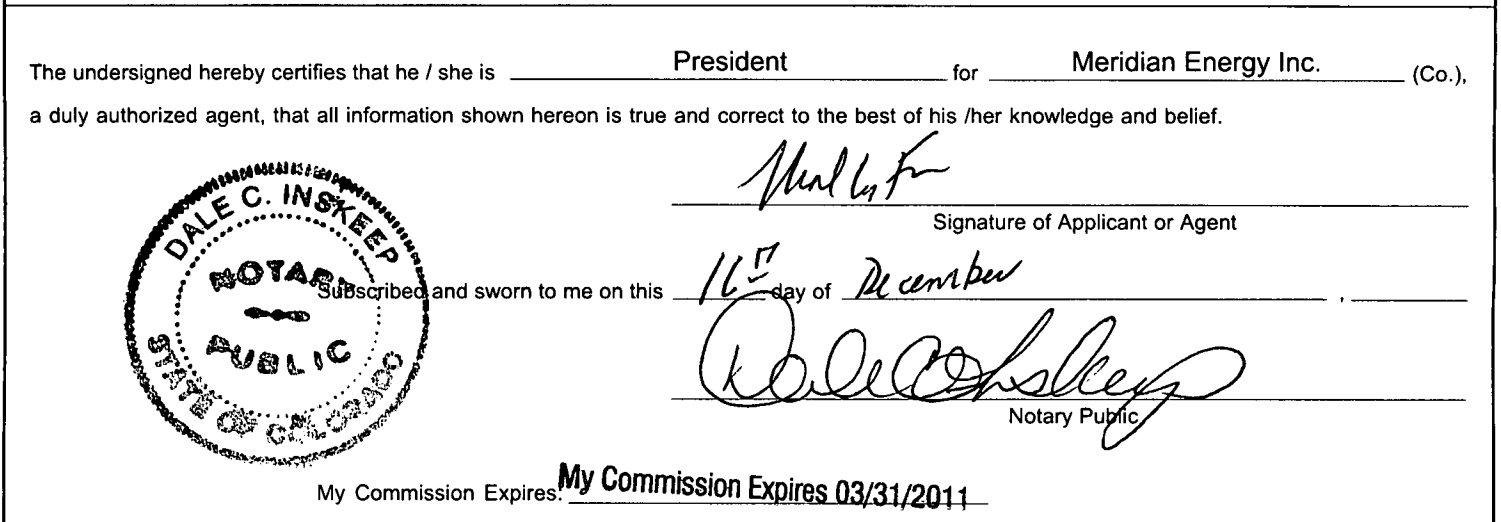 The undersigned hereby certifies that he / she is President for Meridian Energy Inc. (Co.),
a duly authorized agent, that all information shown hereon is true and correct to the best of his /her knowledge and belief.
Signature of Applicant or Agent
DALE C. INSKEEP
NOTARY
PUBLIC
STATE OF COLORADO
Subscribed and sworn to me on this day of December ,
Dale C Inskeep
Notary Public
My Commission Expires: My Commission Expires 03/31/2011